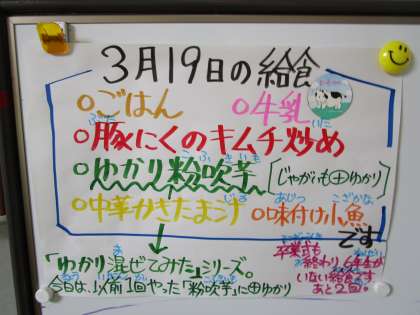 3月19日の給食
○ごはん ○牛乳
○豚にくのキムチ炒め
○ゆかり粉吹芋 [じゃがいも⊕ゆかり]
○中華かきたま汁 ○味付け小魚
です
「ゆかり混ぜてみた」シリーズ。
今日は、以前1回やった「粉吹芋」に⊕ゆかり
卒業式も
終わり、6年生が
いない給食です
あと2回。